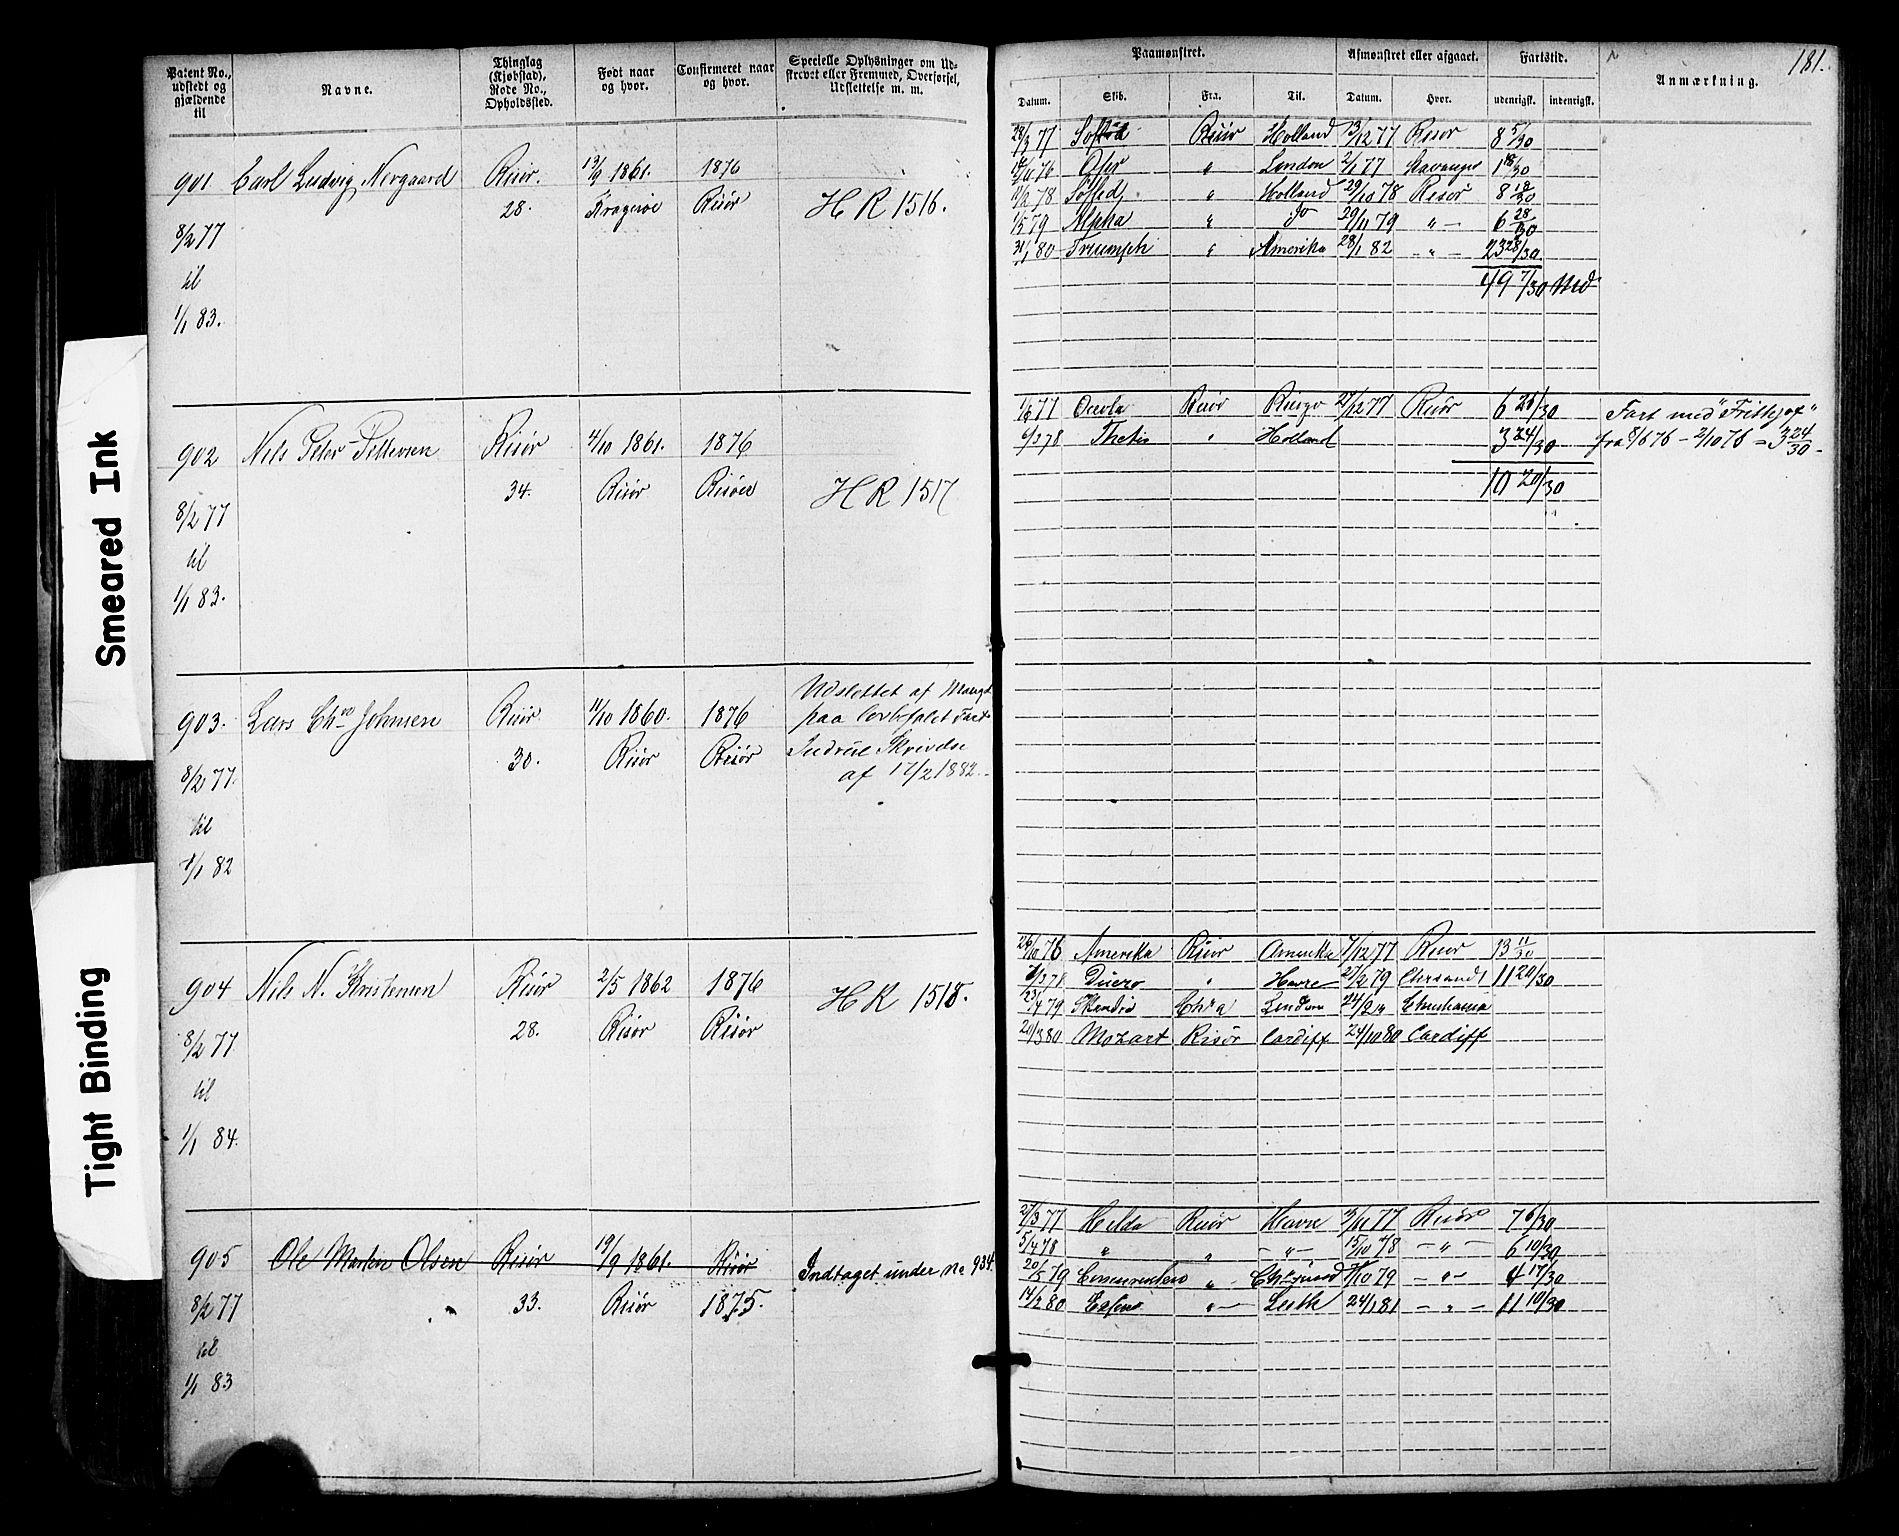 Patent No., udstedt og gjældende til
Navne.
Thinglag (Kjøbstad), Rode No., Opholdssted.
Født naar og hvor.
Confirmeret naar og hvor.
Specielle Oplysninger om Udskrevet eller Fremmed, Overførsel, Udslettelse m. m.
Paamønstret.
Datum.
Skib.
Fra.
Til.
Afmønstret eller afgaaet.
Datum.
Hvor.
Fartstid.
udenrigsk.
indenrigsk.
Anmærkning.
181.
901 Carl Ludvig Norgaard Risør. 13/9 1861. 1876
28. Kragerøe Risør H R 1516.
8/2 77
til
1/1 83.
28/3 77 Risør Holland 13/12 77 Risør 8 5/30
76 " London 2/1 77 Stavanger 1 18/30
78 " Holland 29/10 78 Risør 8 18/30
1/5 79 Alpha " do 29/11 79 " 6 28/30
31/1 80 Triumph " Amerika 28/1 82 " 23 28/30
49 7/30 Md
902 Nils Peter Pettersen Risør 4/10 1861. 1876
34. Risør Risøer H R 1517
8/2 77
til
1/1 83.
1/6 77 Risør 27/12 77 Risør 6 26/30 Fart med "Frithjof"
6/3 78 Thetis " Holland 3 24/30 fra 8/6 76 - 2/10 76 = 3 24/30
10 20/30
903. Lars Chr. Johnsen Risør 11/10 1860. 1876 Udslettet af Mangel
30. Risør Risør paa anbefalet Fart
Indrul. Skrivelse
af 17/2 1882.
8/2 77.
til
1/1 82
904 Nils N. Kristensen Risør 2/5 1862 1876 H R 1518.
28. Risør Risør
8/2 77
til
1/1 84.
26/10 76 Amerika Risør Amerika 7/12 77 Risør 13 11/30
78 Duero " Havre 27/2 79 Chrsand 11 20/30
23/4 79 Chra London Christiania
20/3 80 Mozart Risør Cardiff 24/10 80 Cardiff
905 Ole Martin Olsen Risør 19/9 1861. Risør Indtaget under No 934
33. Risør 1875.
8/2 77
til
1/1 83
27/3 77 Helda Risør Havre 3/11 77 Risør 7 6/30
5/4 78 " " " 15/10 78 " 6 10/30
20/5 79 " Chrsund 7/10 79 " 4 17/30
14/2 80 " Leith 24/1 81 " 11 10/30
Smeared Ink
Tight Binding